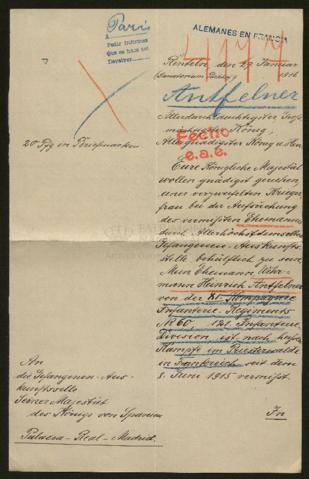 París
Pedir informes
Que se haga así
Devolver
ALEMANES EN FRANCIA
4177
Rinteln, den 29. Januar
1916
Antfelner
Allerdurchlauchtigster
mächtigster König,
Allergnädigster König u. Herr
Fecho
e.a.e.
20 Pfg in Briefmarken
Eure Königliche Majestät
wollen gnädigst geruhen,
einer verzweifelten Krieger
frau bei der Aufsuchung
des vermißten Ehemannes
durch Allerhöchst
Gefangenen-Auskunfts
stelle behülflich zu sein.
Mein Ehemann Wehr-
mann Heinrich Antfelner
von der XI. Kompagnie
Infanterie-Regiments
No 60. 121. Infanterie
Division ist nach
Kampfe im Priesterwalde
in Frankreich seit dem
8. Juni 1915 vermißt.
In
An
die Gefangenen-Aus-
kunftsstelle
Seiner Majestät
des Königs von Spanien
Palacio-Real-Madrid.